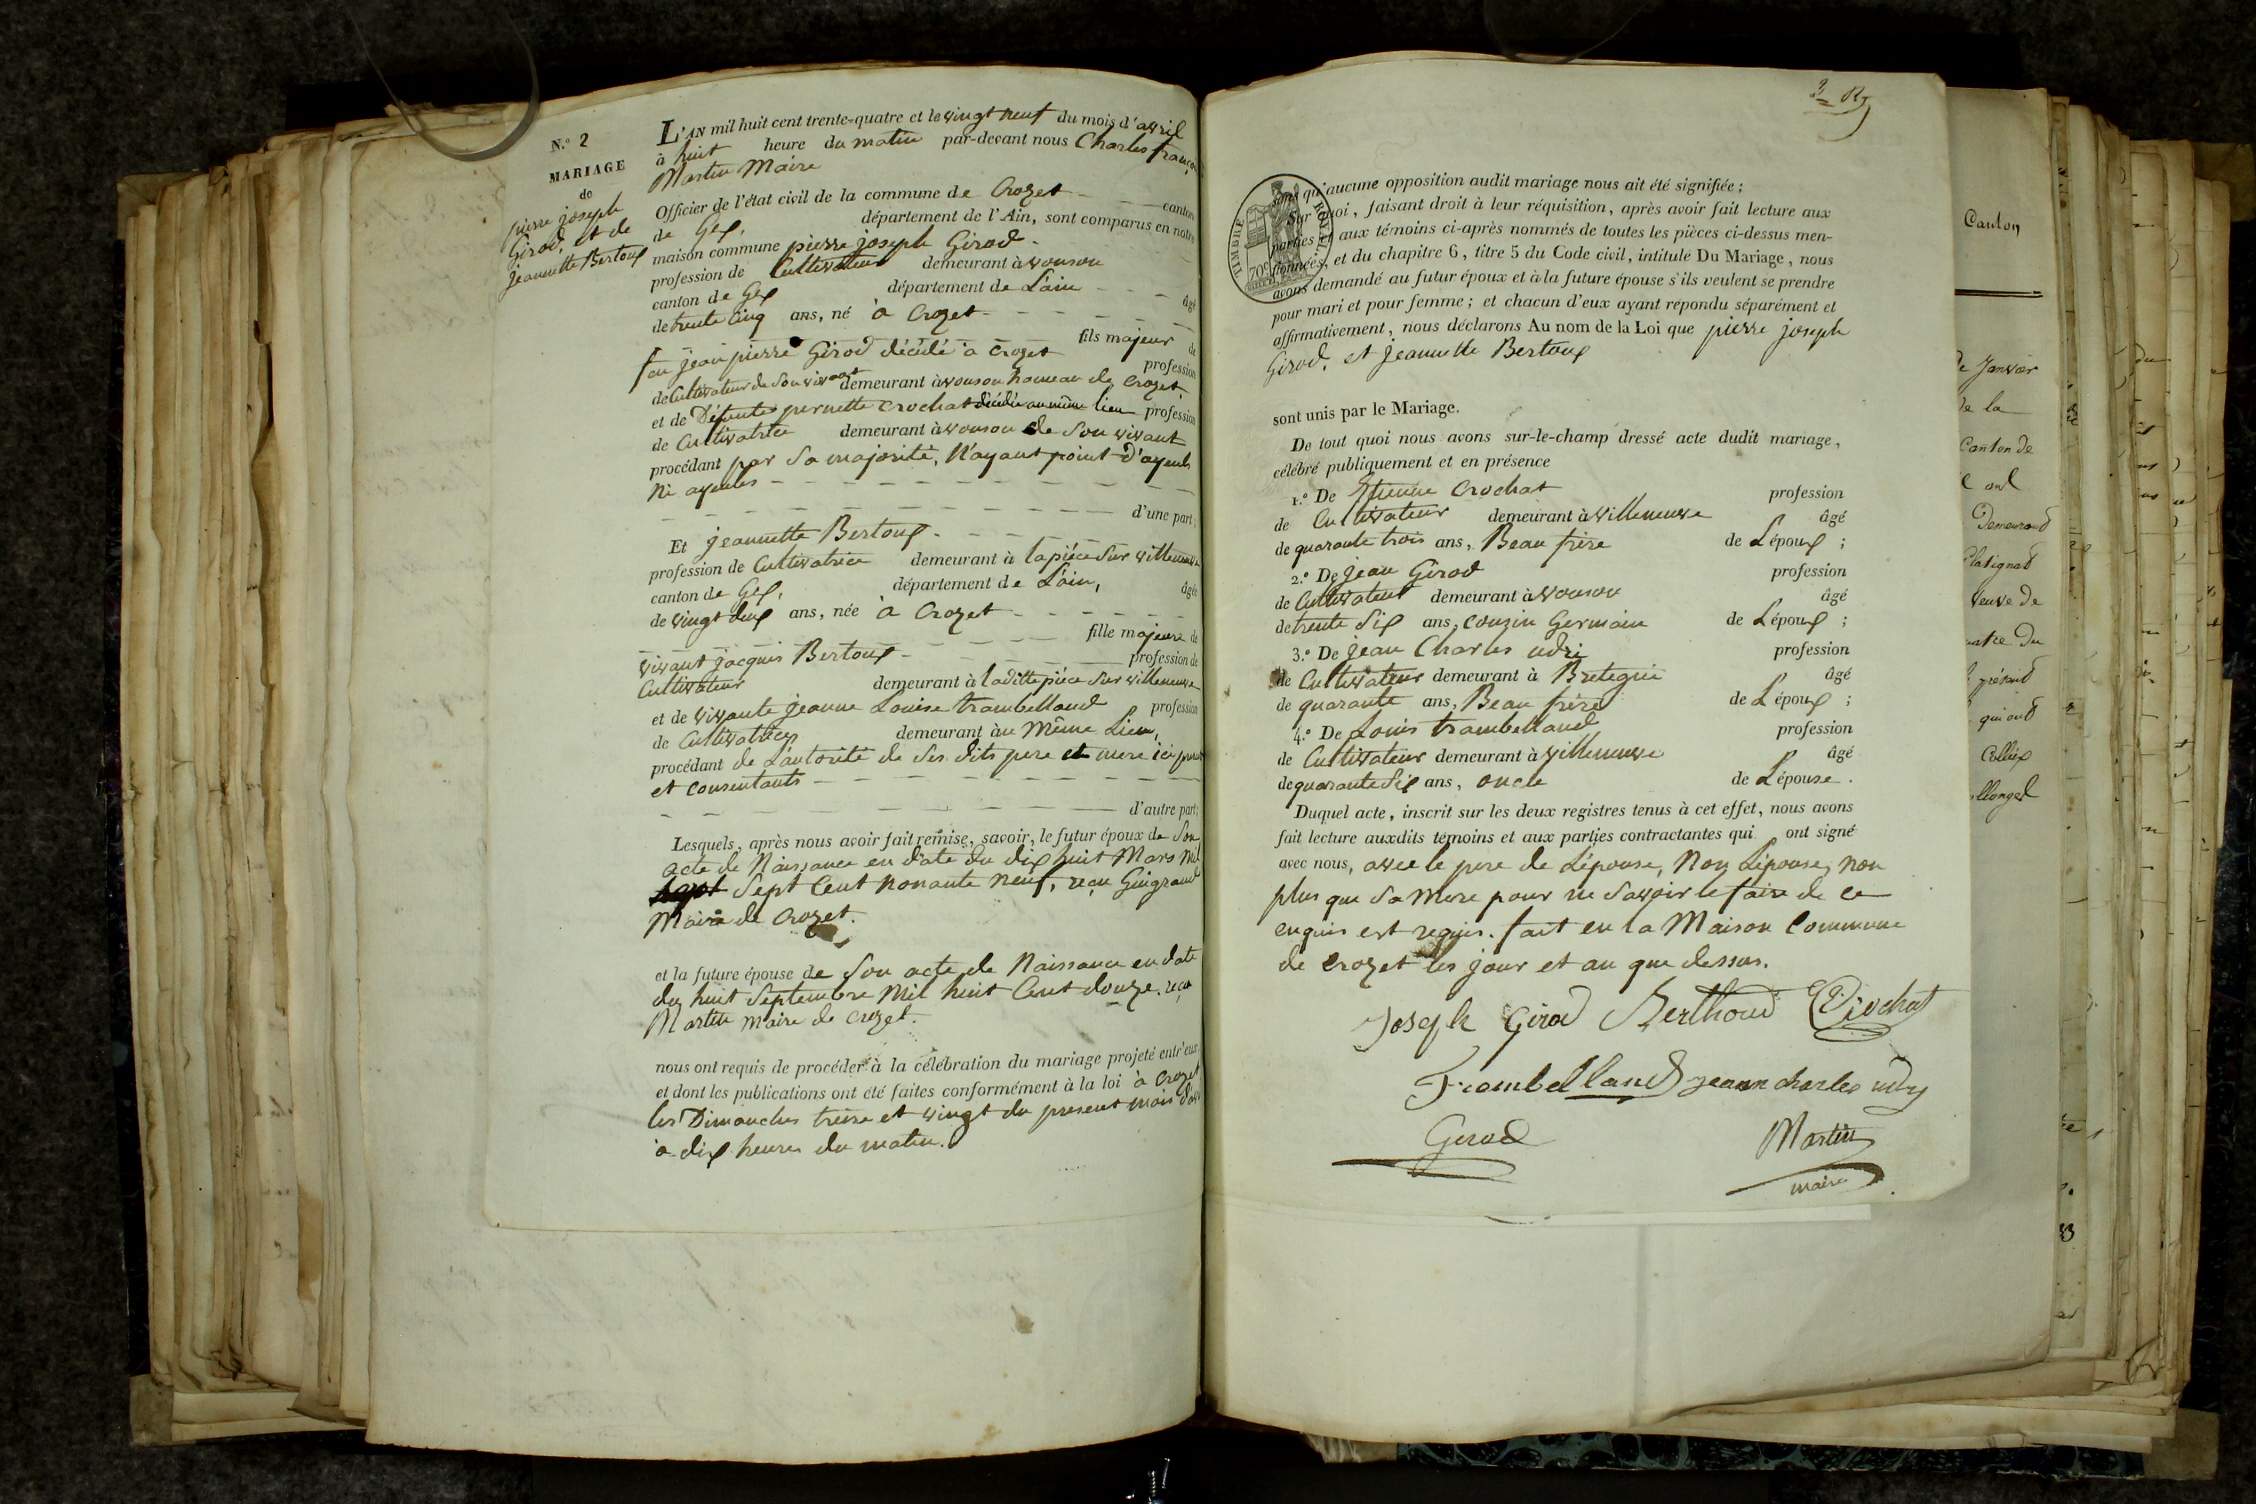 N.º 2
MARIAGE
de
pierre joseph
Girod, et de
jeannette Bertoux
L'AN mil huit cent trente-quatre et le vingt neuf du mois d'avril
à huit heure du matin par-devant nous Charles françois
Martin Maire
Officier de l'état civil de la commune de Crozet canton
de Gex, département de l'Ain, sont comparus en notre
maison commune pierre joseph Girod
profession de Cultivateur demeurant à vouson
canton de Gex département de L'ain âgé
de trente cinq ans, né à Crozet
fils majeur de
feu jean pierre Girod décédé à crozet profession
de Cultivateur de son vivant demeurant à vouson hameau de crozet,
et de Défunte pernette crochat décédée au même lieu profession
de Cultivatrice demeurant à vouson de son vivant
procédant par sa majorité, N'ayant point d'ayeuls
Ni ayeules
d'une part;
Et jeannette Bertoux
profession de Cultivatrice demeurant à lapiéce sur villeneuve
canton de Gex, département de L'ain, âgée
de vingt deux ans, née à Crozet
fille majeure de
vivant jacques Bertoux profession de
Cultivateur demeurant à laditte piéce sur villeneuve
et de vivante jeanne Louise trambelland profession
de Cultivatrice demeurant au Même Lieu,
procédant de L'autorité de ses dits pere et mere ici
et consentants
d'autre part;
Lesquels, après nous avoir fait remise, savoir, le futur époux de son
acte de Naissance en date du dix huit Mars Mil
sept Sept Cent Nonante Neuf, reçu Guigrand
Maire de Crozet.
et la future épouse de son acte de Naissance en date
du huit Septembre Mil huit Cent douze. reçu
Martin maire de crozet.
nous ont requis de procéder à la célébration du mariage projeté entr'eux
et dont les publications ont été faites conformément à la loi à Crozet
les Dimanches treize et vingt du present mois
à dix heures du matin.
TIMBRE ROYAL
70c
sans qu'aucune opposition audit mariage nous ait été signifiée;
Sur quoi, faisant droit à leur réquisition, après avoir fait lecture aux
parties et aux témoins ci-après nommés de toutes les pièces ci-dessus men-
tionnées, et du chapitre 6, titre 5 du Code civil, intitulé Du Mariage, nous
avons demandé au futur époux et à la future épouse s'ils veulent se prendre
pour mari et pour femme; et chacun d'eux ayant répondu séparément et
affirmativement, nous déclarons Au nom de la Loi que pierre joseph
Girod, et jeannette Bertoux
sont unis par le Mariage.
De tout quoi nous avons sur-le-champ dressé acte dudit mariage,
célébré publiquement et en présence
1.º De Etienne Crochat profession
de Cultivateur demeurant à villeneuve âgé
de quarante trois ans, Beau frère de L'époux;
2.º De jean Girod profession
de Cultivateur demeurant à vouson âgé
de trente six ans, couzin Germain de L'époux;
3.º De jean Charles udri profession
de Cultivateur demeurant à Bretegni âgé
de quarante ans, Beau frère de L'époux;
4.º De Louis trambelland profession
de Cultivateur demeurant à villeneuve âgé
de quarante six ans, oncle de L'épouse.
Duquel acte, inscrit sur les deux registres tenus à cet effet, nous avons
fait lecture auxdits témoins et aux parties contractantes qui ont signé
avec nous, avec le pere de L'épouse, Non L'épouse, non
plus que sa Mere pour ne savoir le faire de ce
enquis est requis. fait en la Maison Commune
de Crozet les jour et an que dessus.
Joseph Girod Berthoud Crochat
Trambelland jean charles udry
Gerod Martin
maire
Canton
de Janvier
de la
Canton de
Veuve de
qui ont